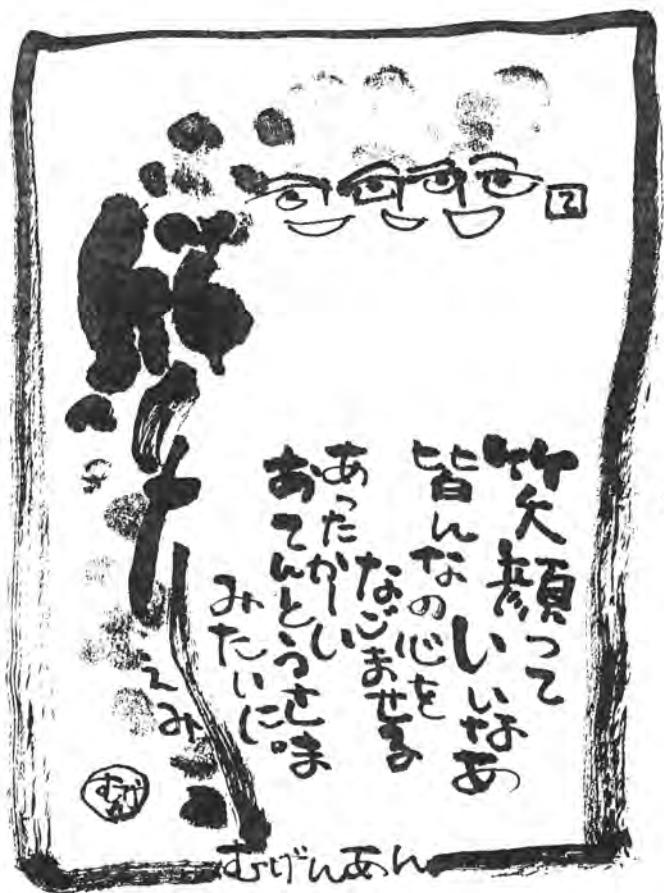 笑顔って
いいなあ
皆んなの心を
なごませる
あったかーい
おてんとうさま
みたいに。
えみ
むげん
むげんあん